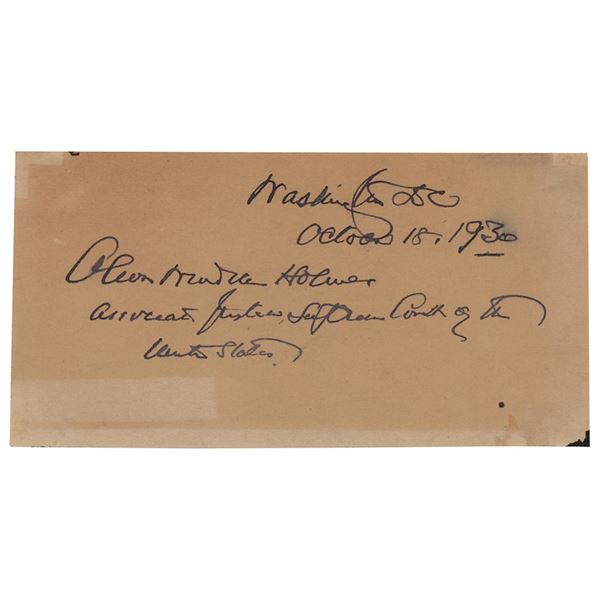 Washington DC
October 18, 1930
Oliver Wendell Holmes
Associate Justice, Supreme Court of the
United States